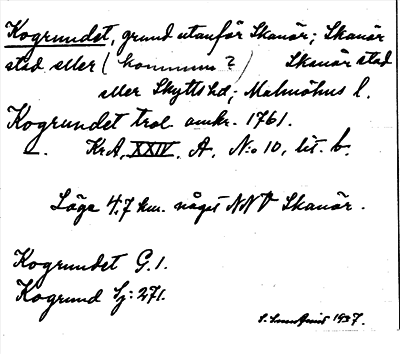 Kogrundet, grund utanför Skanör; Skanör
stad eller (kommun?) Skanör stad
eller Skytts hd; Malmöhus l.
Kogrundet trol. omkr. 1761.
KrA, XXIV, A, N:o 10, lit. b.
Läge 4,7 km. något NNV Skanör.
Kogrundet G.1.
Kogrund Sj: 271.
S. Lundquist 1937.